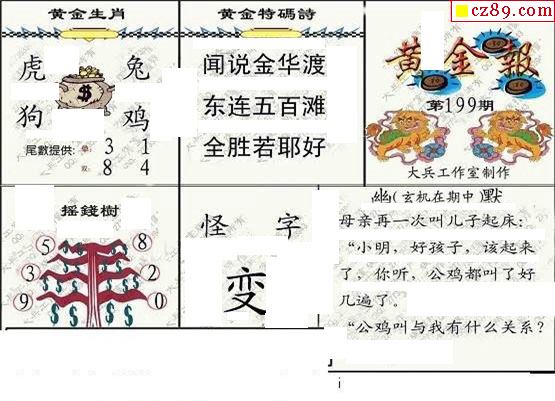 cz89.com
黄金生肖
虎 兔
狗 鸡
$
尾數提供: 单: 3 1
双: 8 4
黄金特碼詩
闻说金华渡
东连五百滩
全胜若耶好
黄金報
第199期
大兵工作室制作
摇錢樹
5 8
3 2
9 0
怪 字
变
幽(玄机在期中)默
母亲再一次叫儿子起床:
“小明，好孩子，该起来
了，你听，公鸡都叫了好
几遍了。
“公鸡叫与我有什么关系?